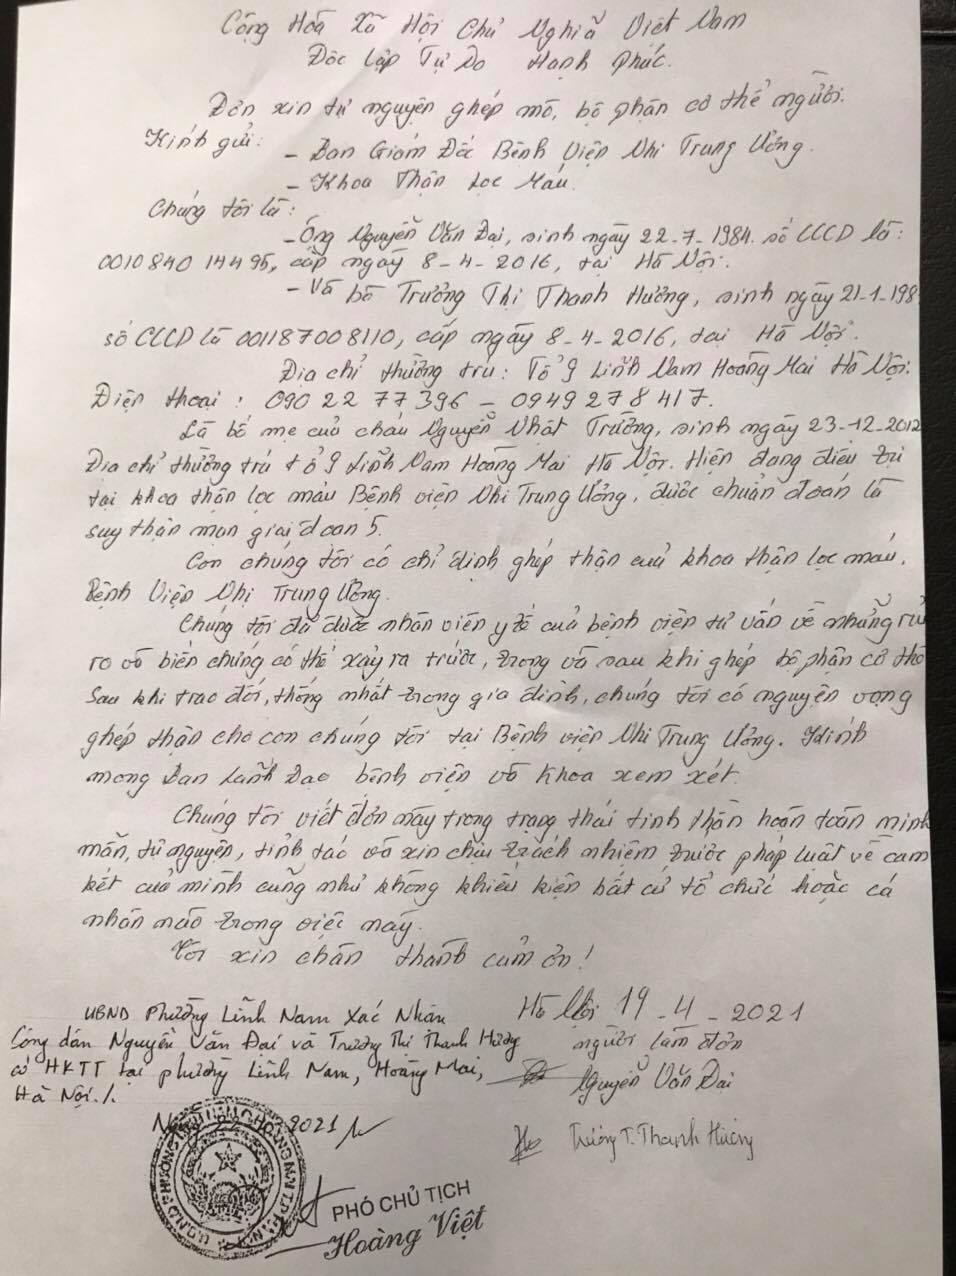 Cộng Hoà Xã Hội Chủ Nghĩa Việt Nam
Độc lập Tự Do Hạnh Phúc.
Đơn xin tự nguyện ghép mô, bộ phận cơ thể người.
Kính gửi:
- Ban Giám Đốc Bệnh Viện Nhi Trung Ương.
- Khoa Thận Lọc Máu.
Chúng tôi là:
- Ông Nguyễn Văn Đại, sinh ngày 22-7-1984. số CCCD là:
001084014495, cấp ngày 8-4-2016, tại Hà Nội.
- Và bà Trương Thị Thanh Hương, sinh ngày 21-1-198
số CCCD là 001187008110, cấp ngày 8-4-2016, tại Hà Nội.
Địa chỉ thường trú: Tổ 9 Lĩnh Nam Hoàng Mai Hà Nội.
Điện thoại: 090 22 77 396 - 0949 278 417.
Là bố mẹ của cháu Nguyễn Nhật Trường, sinh ngày 23-12-2012
Địa chỉ thường trú tổ 9 Lĩnh Nam Hoàng Mai Hà Nội. Hiện đang điều trị
tại khoa thận lọc máu Bệnh viện Nhi Trung Ương, được chuẩn đoán là
suy thận mạn giai đoạn 5.
Con chúng tôi có chỉ định ghép thận của khoa thận lọc máu,
Bệnh Viện Nhi Trung Ương.
Chúng tôi đã được nhân viên y tế của bệnh viện tư vấn về những rủi
ro và biến chứng có thể xảy ra trước, trong và sau khi ghép bộ phận cơ thể
Sau khi trao đổi, thống nhất trong gia đình, chúng tôi có nguyện vọng
ghép thận cho con chúng tôi tại Bệnh viện Nhi Trung Ương. Kính
mong Ban Lãnh Đạo bệnh viện và khoa xem xét.
Chúng tôi viết đơn này trong trạng thái tinh thần hoàn toàn minh
mẫn, tự nguyện, tỉnh táo và xin chịu trách nhiệm trước pháp luật về cam
kết của mình cũng như không khiếu kiện bất cứ tổ chức hoặc cá
nhân nào trong việc này.
Tôi xin chân thành cảm ơn!
Hà Nội 19-4-2021
người làm đơn
Nguyễn Văn Đại
Trương T. Thanh Hương
UBND Phường Lĩnh Nam Xác Nhận
Công dân Nguyễn Văn Đại và Trương Thị Thanh Hương
có HKTT tại phường Lĩnh Nam, Hoàng Mai,
Hà Nội./.
2021
PHÓ CHỦ TỊCH
Hoàng Việt